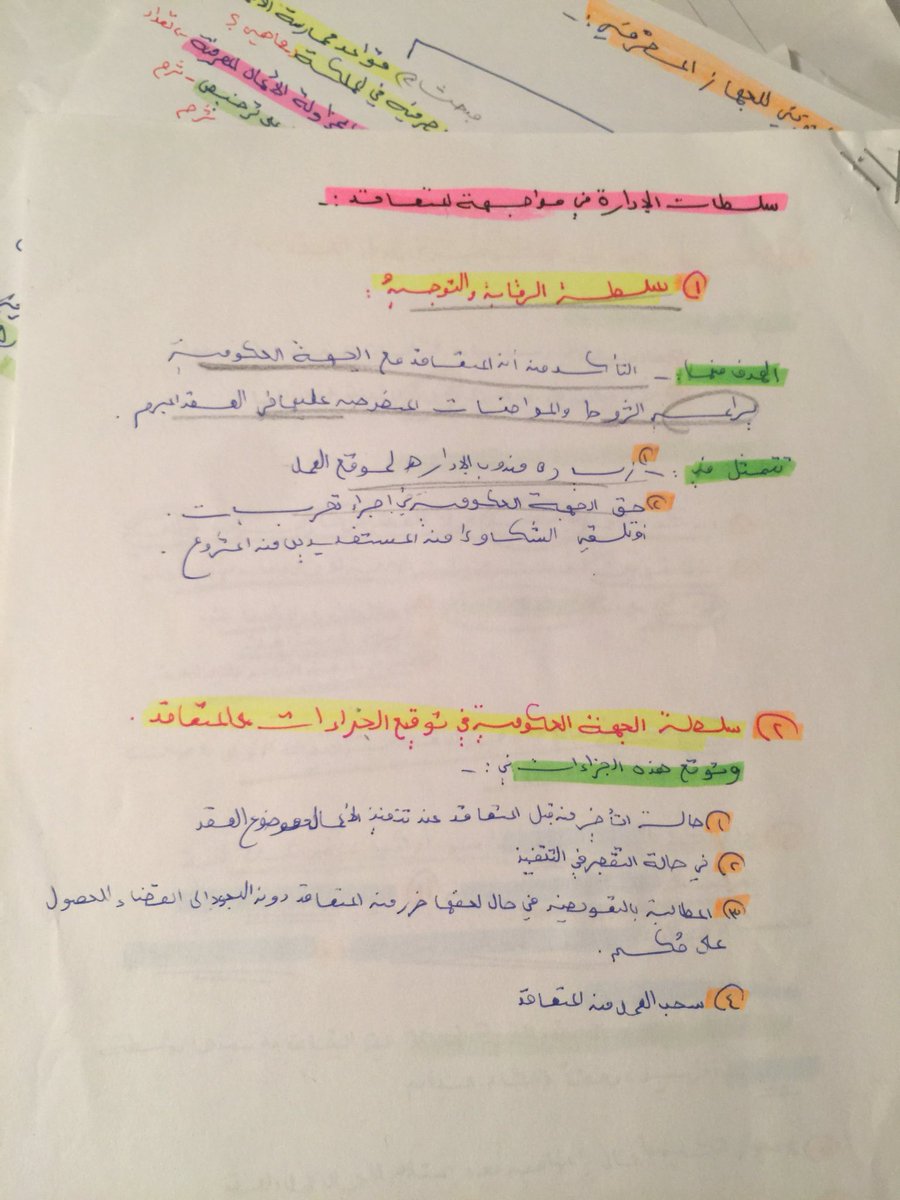 التمويني للجهاز المصرفي :-
قواعد ممارسة
سلطات الإدارة في مواجهة المتعاقد :-
① سلطة الرقابة والتوجيه :
الهدف منها :- التأكد من أن المتعاقد مع الجهة الحكومية
يراعي الشروط والمواصفات المنصوص عليها في العقد المبرم .
تتمثل في :- ① زيارة مندوب الإدارة لموقع العمل
② حق الجهة الحكومية في اجراء تحريات .
أو تلقي الشكاوى من المستفيدين من المشروع .
② سلطة الجهة الحكومية في توقيع الجزاءات على المتعاقد .
وتوقع هذه الجزاءات في :-
① حالة التأخير من قبل المتعاقد عند تنفيذ الأعمال موضوع العقد
② في حالة التقصير في التنفيذ
③ المطالبة بالتعويض في حال لحقها ضرر من المتعاقد دون اللجوء الى القضاء للحصول
على حكم .
④ سحب العمل من المتعاقد